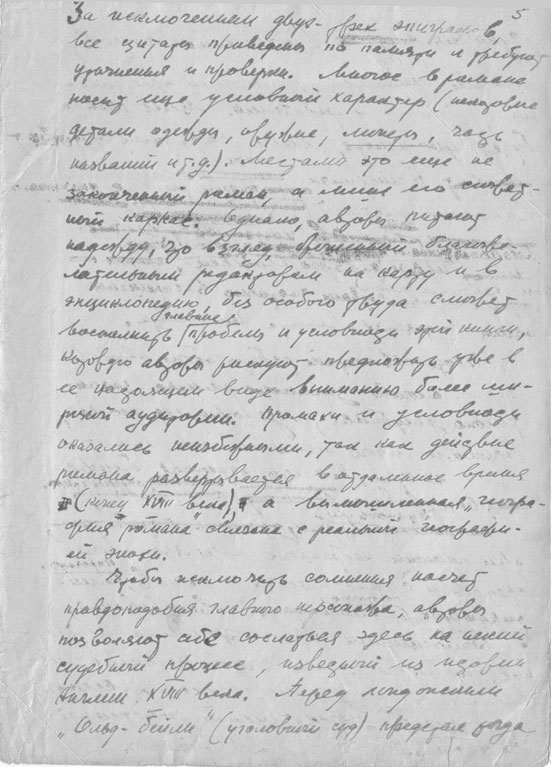 5
За исключением двух-трех эпиграфов,
все цитаты приведены по памяти и требуют
уточнения и проверки. Многое в романе
носит еще условный характер (некоторые
детали одежды, оружие, манеры, часть
названий и т.д.). Местами это еще не
законченный роман, а лишь его сюжет-
ный каркас. Однако, авторы питают
надежду, что взгляд, брошенный благоже-
лательным редактором на карту и в
энциклопедию, без особого труда сможет
главные
восполнить пробелы и условности этой книги,
которую авторы рискуют предложить уже в
ее настоящем виде вниманию более ши-
рокой аудитории. Промахи и условности
оказались неизбежными, так как действие
романа развертывается в отдаленное время
(конец XVIII века), а вымышленная "геогра-
фия" романа связана с реальной географи-
ей эпохи.
Чтобы исключить сомнения насчет
правдоподобия главного персонажа, авторы
позволяют себе сослаться здесь на некий
судебный процесс, известный из истории
Англии XVIII века. Перед лондонским
"Ольд-Бейли" (уголовный суд) предстал тогда